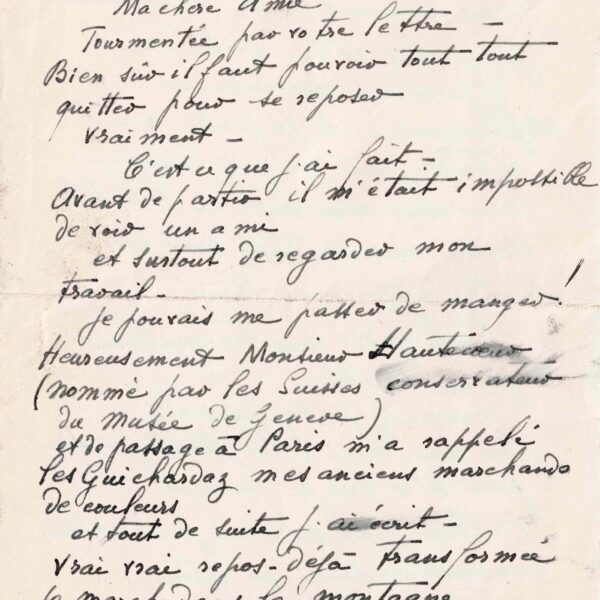 Ma chère Amie
Tourmentée par votre lettre –
Bien sûr il faut pouvoir tout tout
quitter pour se reposer
vraiment –
C'est ce que j'ai fait –
Avant de partir il m'était impossible
de voir un ami
et surtout de regarder mon
travail –
je pouvais me passer de manger !
Heureusement Monsieur
(nommé par les Suisses conservateur
du Musée de Genève)
et de passage à Paris m'a rappelé
les Guichardaz mes anciens marchands
de couleurs
et tout de suite j'ai écrit –
vrai vrai repos – déjà transformée
la montagne